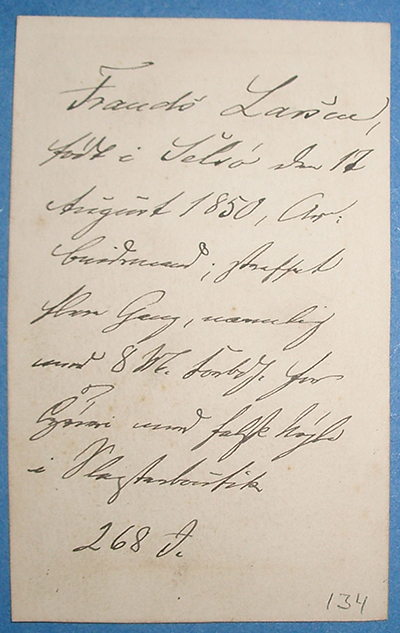 Frands Larsen,
født i Selsø den 17
August 1850, Ar-
beidsmand; straffet
flere Gang, navnlig
med 8 M. Forbdh. for
Tyveri med falsk Nøgle
i Slagterboutik
268 J.
134